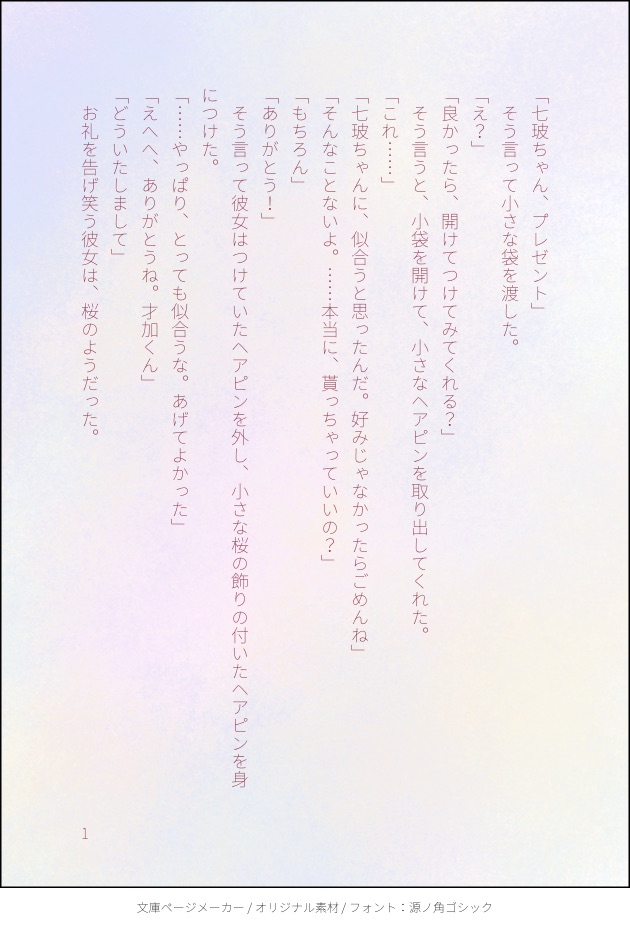 「七玻ちゃん、プレゼント」
　そう言って小さな袋を渡した。
「え？」
「良かったら、開けてつけてみてくれる？」
　そう言うと、小袋を開けて、小さなヘアピンを取り出してくれた。
「これ……」
「七玻ちゃんに、似合うと思ったんだ。好みじゃなかったらごめんね」
「そんなことないよ。……本当に、貰っちゃっていいの？」
「もちろん」
「ありがとう！」
　そう言って彼女はつけていたヘアピンを外し、小さな桜の飾りの付いたヘアピンを身
につけた。
「……やっぱり、とっても似合うな。あげてよかった」
「えへへ、ありがとうね。才加くん」
「どういたしまして」
　お礼を告げ笑う彼女は、桜のようだった。
1
文庫ページメーカー / オリジナル素材 / フォント：源ノ角ゴシック